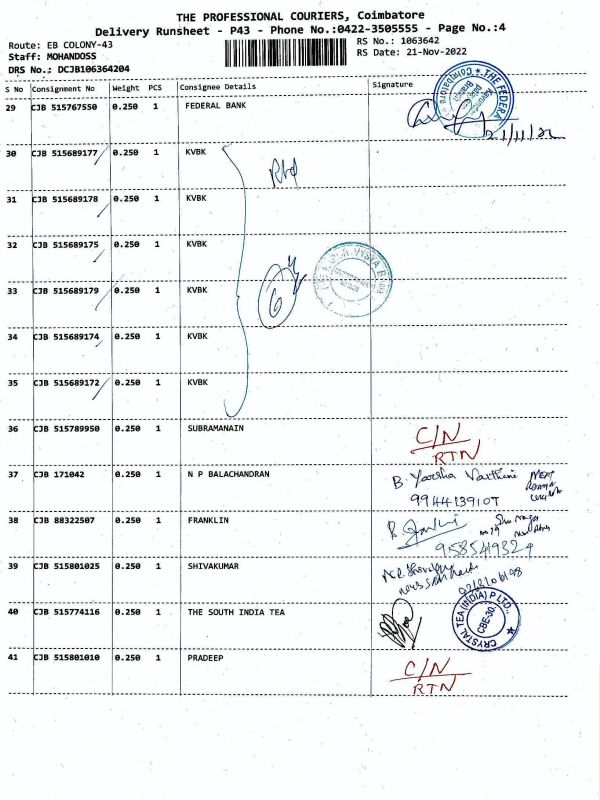 THE PROFESSIONAL COURIERS, Coimbatore
Delivery Runsheet - P43 - Phone No.:0422-3505555 - Page No.:4
Route: EB COLONY-43
RS No.: 1063642
Staff: MOHANDOSS
RS Date: 21-Nov-2022
DRS No.: DCJB106364204
S No Consignment No Weight PCS Consignee Details Signature
29 CJB 515767550 0.250 1 FEDERAL BANK
THE FEDERAL
Coimbatore
21/11/22
30 CJB 515689177 0.250 1 KVBK
31 CJB 515689178 0.250 1 KVBK
32 CJB 515689175 0.250 1 KVBK
33 CJB 515689179 0.250 1 KVBK
6
VYSYA BANK
34 CJB 515689174 0.250 1 KVBK
35 CJB 515689172 0.250 1 KVBK
36 CJB 515789950 0.250 1 SUBRAMANAIN
C/N
RTN
37 CJB 171042 0.250 1 N P BALACHANDRAN
9944139107
38 CJB 88322507 0.250 1 FRANKLIN
9585419324
39 CJB 515801025 0.250 1 SHIVAKUMAR
40 CJB 515774116 0.250 1 THE SOUTH INDIA TEA
CRYSTAL TEA (INDIA) P LTD.,
CBE-30.
41 CJB 515801010 0.250 1 PRADEEP
C/N
RTN